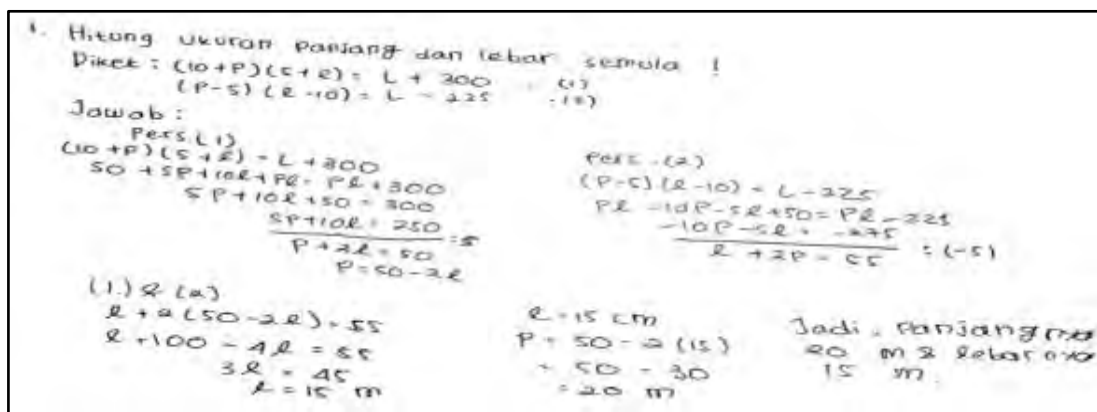 1. Hitung ukuran panjang dan lebar semula !
Diket : (10+P)(5+l) = L + 300 . (1)
(P-5)(l-10) = L - 225 . (2)
Jawab :
Pers.(1)
(10+P)(5+l) = L+300
50 + 5P+10l+Pl = Pl+300
5P+10l+50 = 300
5P+10l = 250 :5
P+2l = 50
P=50-2l
Pers.(2)
(P-5)(l-10) = L-225
Pl -10P-5l+50=Pl-225
-10P-5l = -275 : (-5)
l +2P = 55
(1) & (2)
l + 2(50-2l) = 55
l+100 - 4l = 55
3l = 45
l = 15 m
l = 15 cm
P = 50 - 2(15)
= 50 - 30
= 20 m
Jadi, panjangnya
20 m & lebarnya
15 m.